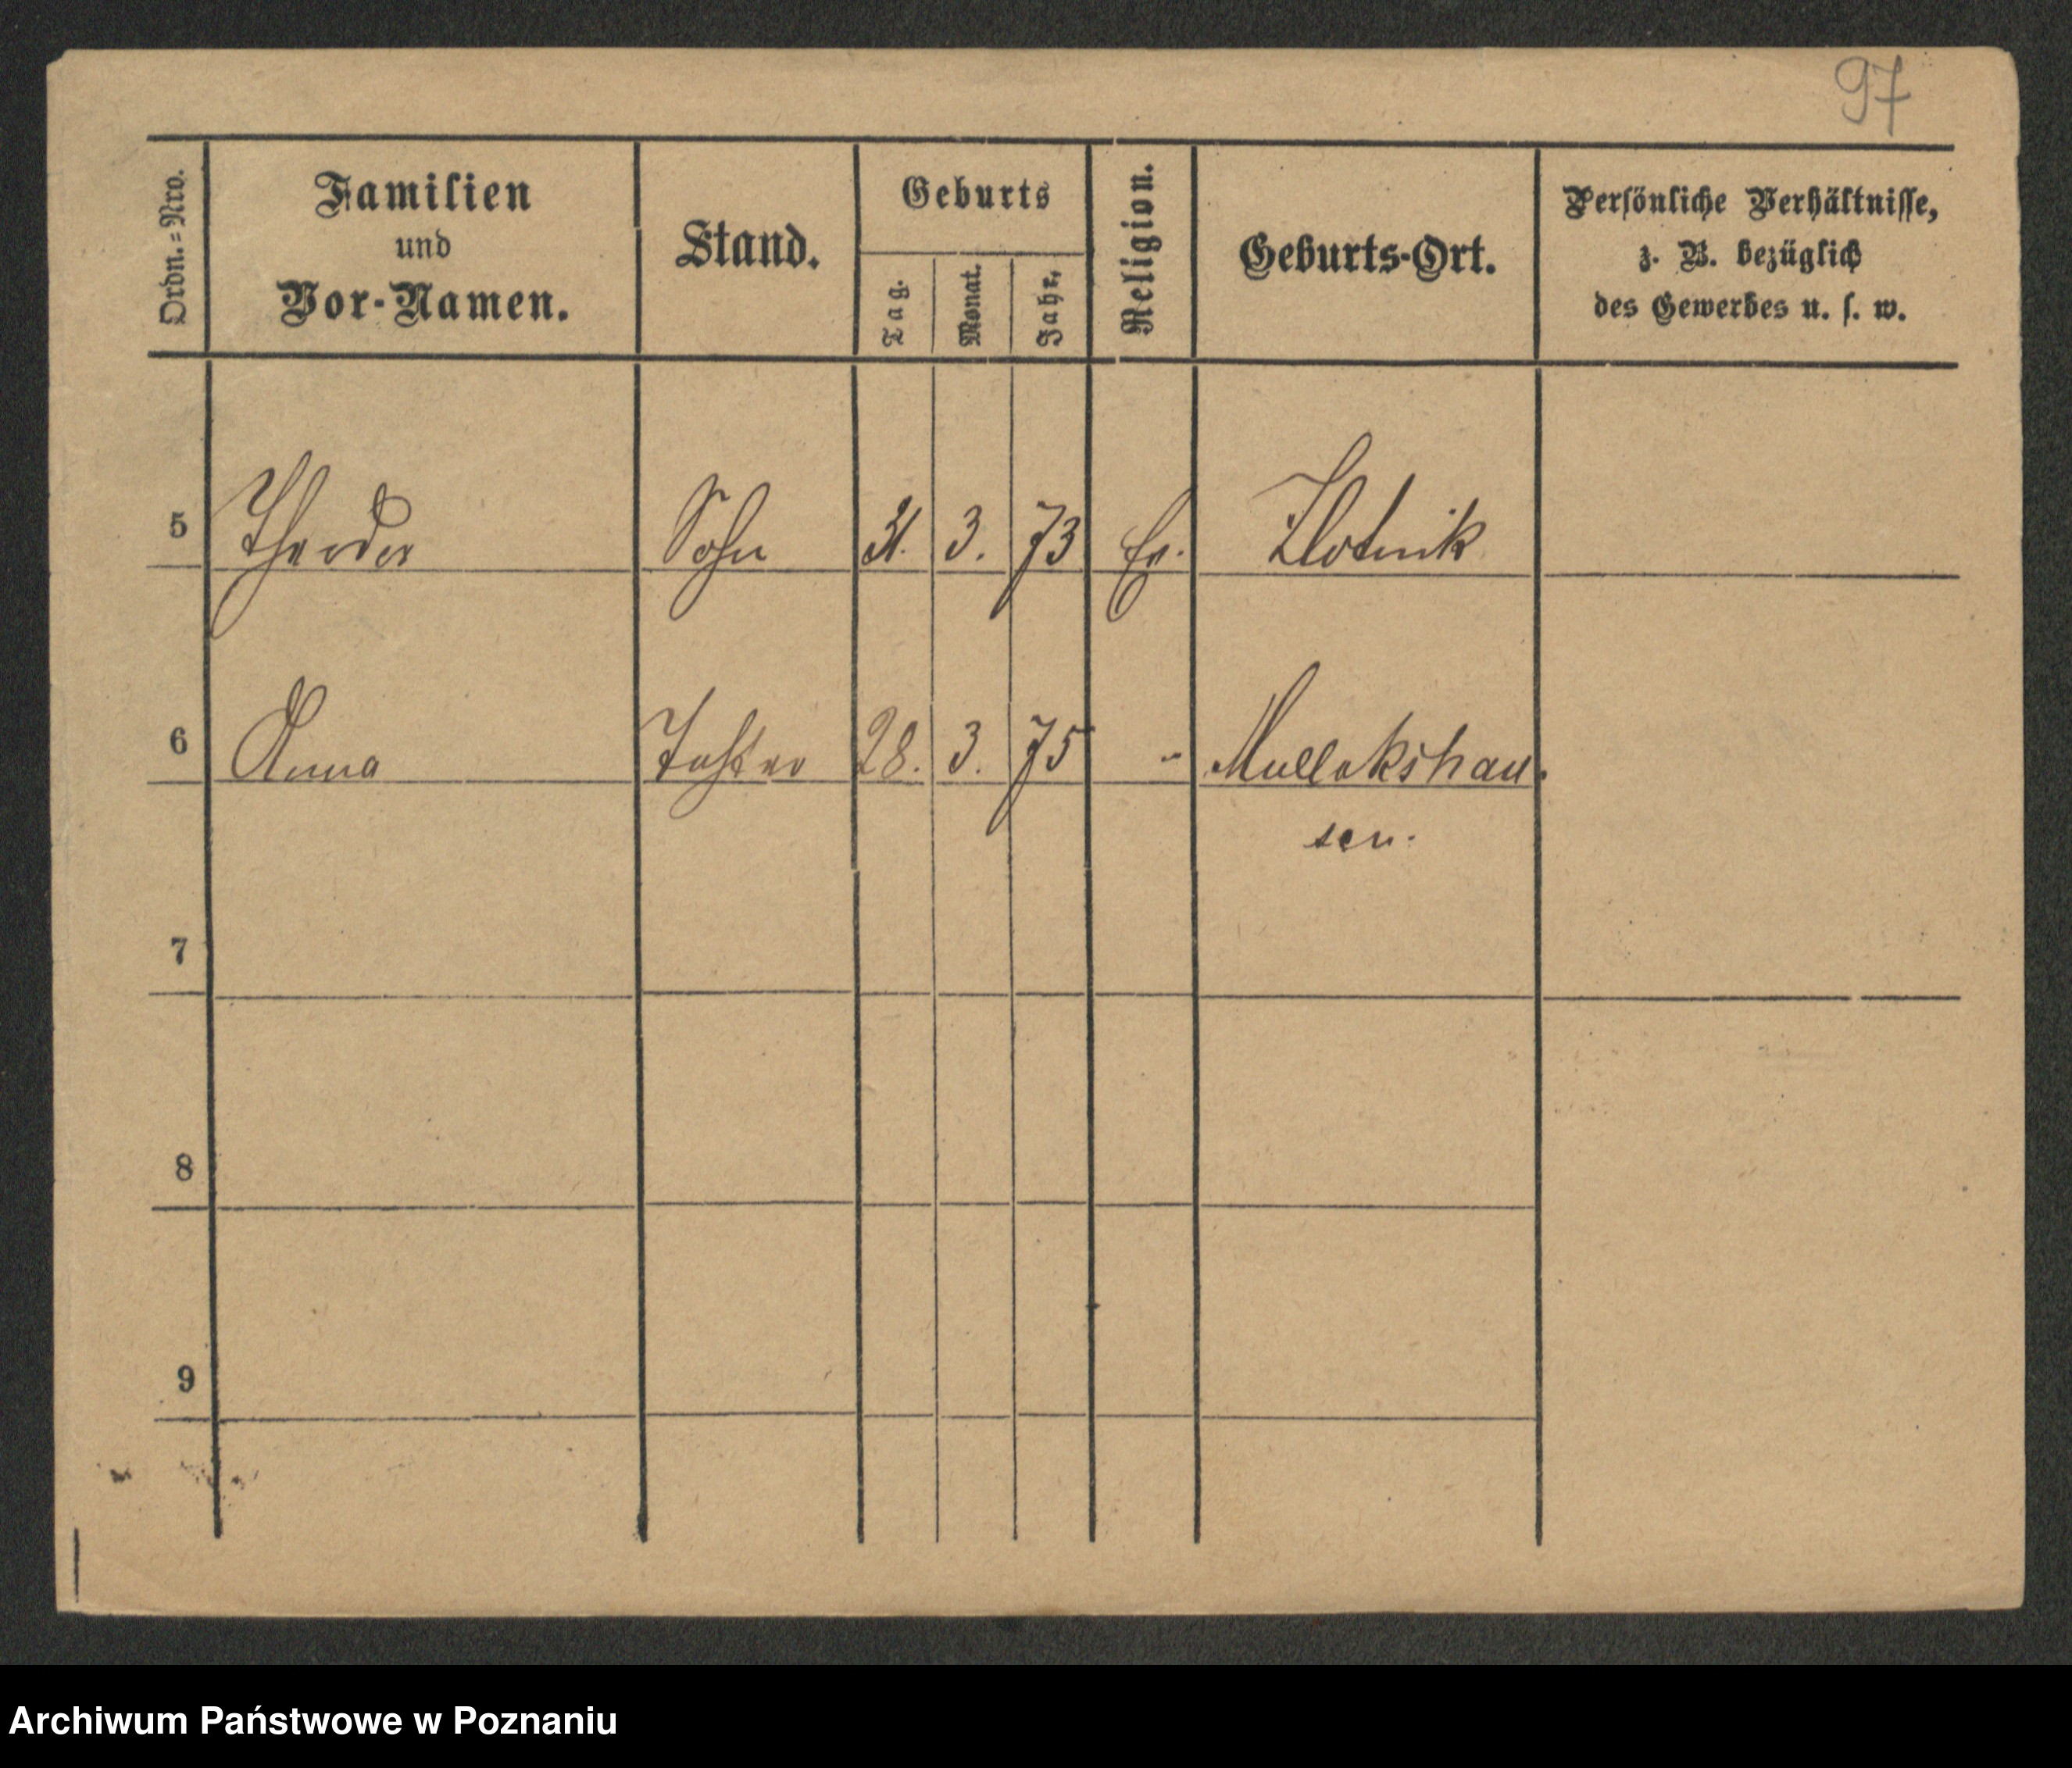 97
Ordn.=Nro.
Familien
und
Vor-Namen.
Stand.
Geburts
Tag.
Monat.
Jahr.
Religion.
Geburts-Ort.
Persönliche Verhältnisse,
z. B. bezüglich
des Gewerbes u. s. w.
5 Theodor Sohn 31. 3. 73 Ev. Zlotnik
6 Anna Tochter 28. 3. 75 " Mullakshau-
sen.
7
8
9
Archiwum Państwowe w Poznaniu